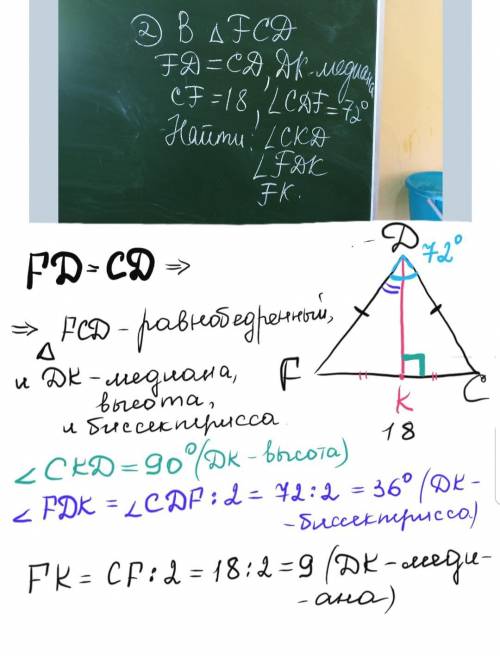 ② В △ FCD
FD = CD, DK-медиана
CF = 18, ∠CDF = 72°
Найти: ∠CKD
∠FDK
FK.
D 72°
FD = CD ⇒
⇒ △ FCD - равнобедренный,
и DK - медиана,
высота,
и биссектрисса
F K C
18
∠ CKD = 90° (DK - высота)
∠ FDK = ∠CDF : 2 = 72 : 2 = 36° (DK -
- биссектрисса)
FK = CF : 2 = 18 : 2 = 9 (DK - меди-
- ана)